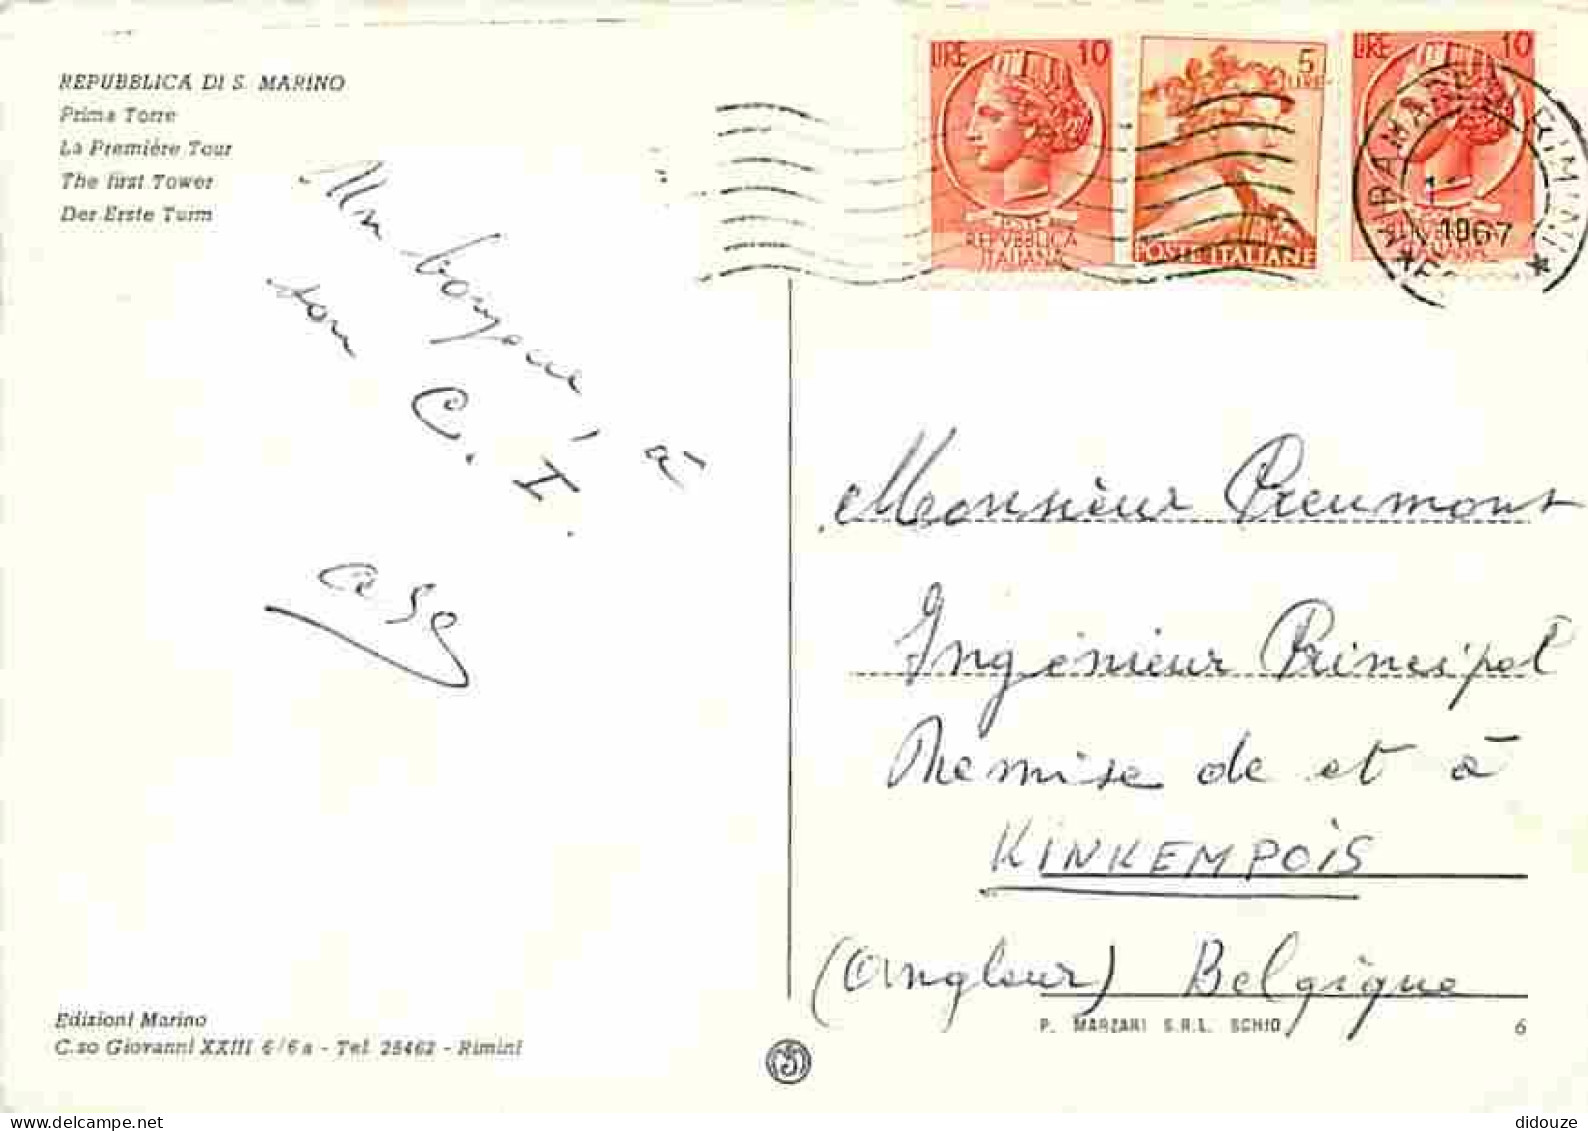 REPUBBLICA DI S. MARINO
Prima Torre
La Première Tour
The first Tower
Der Erste Turm
Un bonjour, à
son C. I.
LIRE 10
REPVBBLICA
ITALIANA
5
LIRE
POSTE ITALIANE
LIRE 10
MIRAMARE DI RIMINI
1967
Monsieur Preumont
Ingénieur Principal
Remise de et à
KINKEMPOIS
(Angleur) Belgique
Edizioni Marino
C.so Giovanni XXIII 6/6a - Tel. 25462 - Rimini
P. MARZARI S.R.L. SCHIO
6
didouze